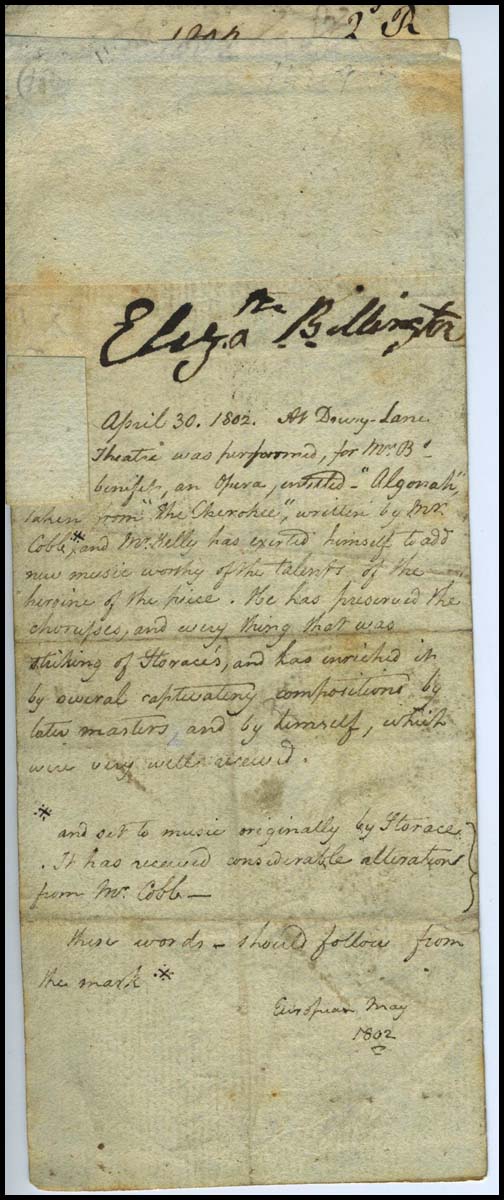 2d R
Eliz.a Billington
April 30. 1802. At Drury-Lane
Theatre was performed, for Mrs. B's
benefit, an Opera, entitled - "Algonah",
taken from "The Cherokee", written by Mr.
Cobb,* and Mr. Kelly has exerted himself to add
new music worthy of the talents of the
heroine of the piece. He has preserved the
chorusses, and every thing that was
striking of Storace's, and has enriched it
by several captivating compositions by
later masters, and by himself, which
were very well received.
* and set to music originally by Storace
. It has received considerable alterations
from Mr. Cobb —
these words - should follow from
the mark *
European May
1802